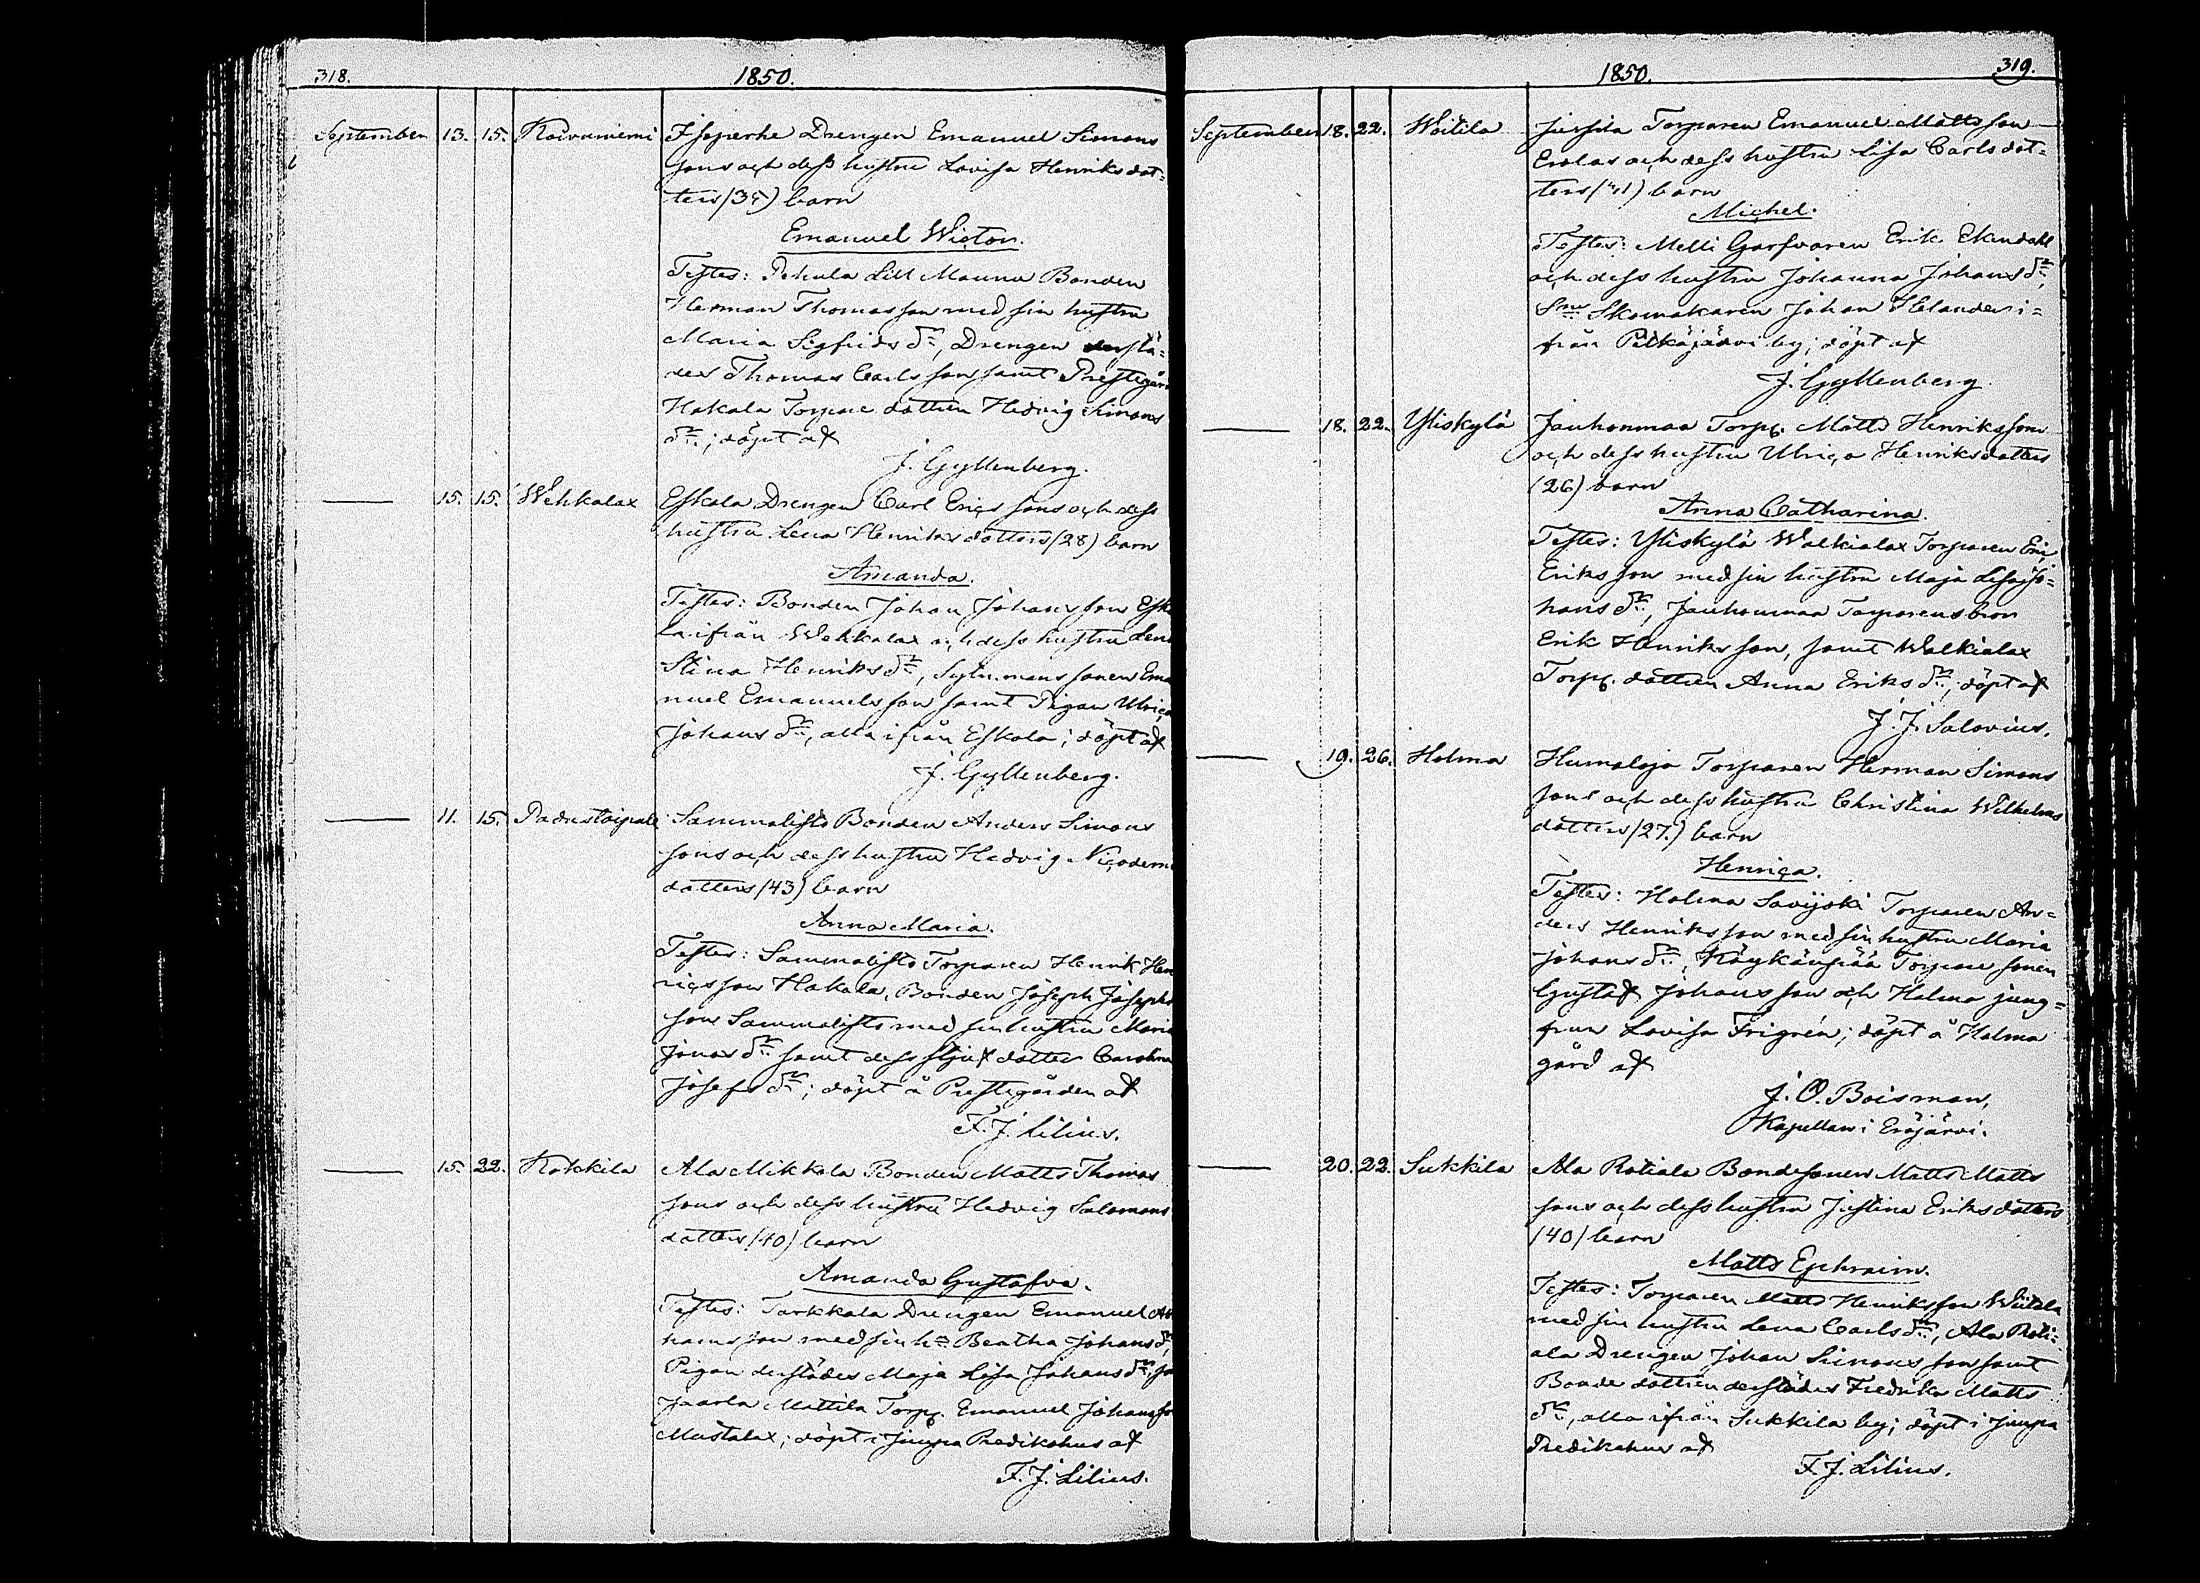 318.
1850.
September 13. 15. Koivuniemi Isoperhe Drengen Emanuel Simons
sons och dess hustru Lovisa Henriksdot=
ters (34) barn
Emanuel Victor.
Testes: Pehula Lill Maunu Bonden
Herman Thomasson med sin hustru
Maria Sigfrids dr, Drengen derstä=
des Thomas Carlsson samt Prestegårds
Hakala Torpare dottren Hedvig Simons
dr; döpt af
J. Gyllenberg.
15. 15. Wehkalax Eskola Drengen Carl Ericssons och dess
hustru Lena Henriksdotters (28) barn
Amanda.
Testes: Bonden Johan Johansson Esko
la ifrån Wehkalax och dess hustru Lena
Stina Henriks dr, Sytn.mans sonen Ema
nuel Emanuelsson samt Pigan Ulrica
Johans dr, alla ifrån Eskola; döpt af
J. Gyllenberg.
11. 15. Padustaipale Sammalisto Bonden Anders Simons
sons och dess hustru Hedvig Nicodemi
dotters (43) barn
Anna Maria.
Testes: Sammalisto Torparen Henrik Hen
ricsson Hakala, Bonden Joseph Josephs
son Sammalisto med sin hustru Maria
Jonas dr samt dess styfdotter Carolina
Josefs dr; döpt å Prestegården af
F. J. Lilius.
15. 22. Kokkila Ala Mikkola Bonden Matts Thomas
sons och dess hustru Hedvig Salomons
dotters (40) barn
Amanda Gustafva.
Testes: Tarkkala Drengen Emanuel Ab
hamsson med sin h Beatha Johans dr,
Pigan derstädes Maja Lisa Johans dr,
Jaarla Mattila Torp. Emanuel Johansson
Mustalax; döpt i Jumpa Predikohus af
F. J. Lilius.
319.
1850.
September 18. 22. Woitila Jussila Torparen Emanuel Mattsson
Erolas och dess hustru Lisa Carlsdot=
ters (41) barn
Michel.
Testes: Melli Garfvaren Erik Ekendahl
och dess hustru Johanna Johans dr,
Skomakaren Johan Helander i=
från Pitkäjärvi by; döpt af
J. Gyllenberg.
18. 22. Yliskylä Jauhonmaa Torp. Matts Henrikssons
och dess hustru Ulrica Henriksdotters
(26) barn
Anna Catharina.
Testes: Yliskylä Walkialax Torparen Eric
Eriksson med sin hustru Maja Lisa Jo=
hans dr, Jauhonmaa Torparens bror
Erik Henriksson, samt Walkialax
Torp. dottren Anna Eriks dr, döpt af
J. J. Salovius.
19. 26. Holma Humaloja Torparen Herman Simons
sons och dess hustru Christina Wilhelms
dotters (27.) barn
Henrica.
Testes: Holma Savijoki Torparen An=
ders Henriksson med sin hustru Maria
Johans dr, Köykänpää Torpare sonen
Gustaf Johansson och Holma jung=
frun Lovisa Frigrén; döpt å Holma
gård af
J. O. Boisman,
Kapellan i Eräjärvi.
20. 22. Sukkila Ala Rotiala Bondesonen Matts Matts
sons och dess hustru Justina Eriksdotters
(40) barn
Matts Ephraim.
Testes: Torparen Matts Henriksson Wiitala
med sin hustru Lena Carls dr, Ala Roti=
ala Drengen Johan Simonsson samt
Bonde dottren derstädes Fredrika Matts
dr, alla ifrån Sukkila by; döpt i Jumpa
Predikohus af
F. J. Lilius.